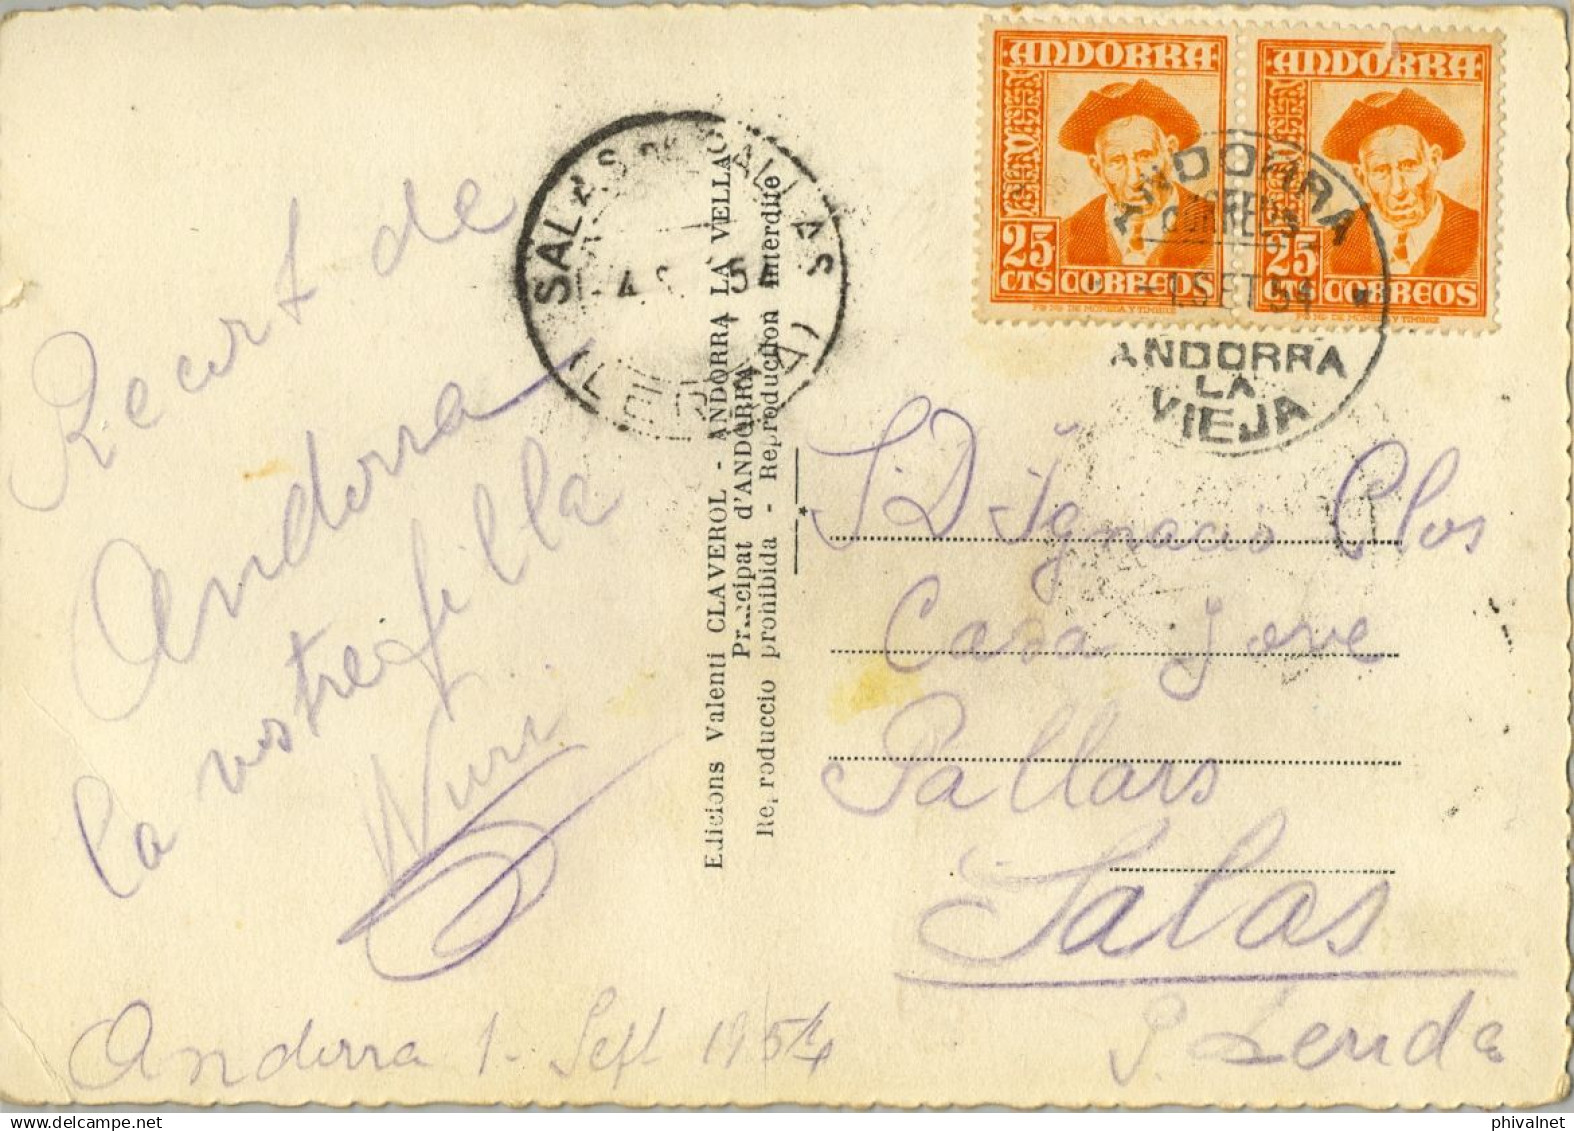 Recort de
Andorra
la vostre filla
Nuri
Andorra 1 - Sept 1954
SALAS DE PALLAS
4 S 54
(LERIDA)
Edicions Valenti CLAVEROL - ANDORRA LA VELLA
Principat d'ANDORRA
Reproduccio prohibida - Reproduction interdite
ANDORRA
25
CTS CORREOS
ANDORRA
25
CTS CORREOS
ANDORRA
CORREOS
-1.SET 54
ANDORRA
LA
VIEJA
S. D. Ignacio Clos
Casa Jove
Pallars
Salas
P. Lerida
phivalnet